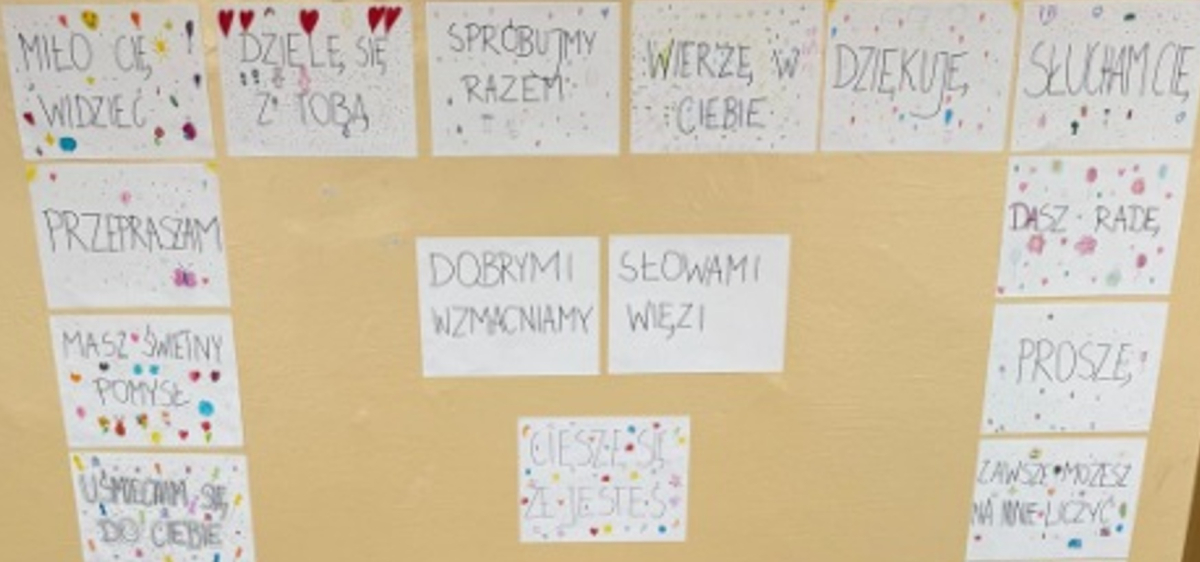 MIŁO CIĘ
WIDZIEĆ
DZIELĘ SIĘ
Z TOBĄ
SPRÓBUJMY
RAZEM
WIERZĘ W
CIEBIE
DZIĘKUJĘ
SŁUCHAM CIĘ
PRZEPRASZAM
DASZ RADĘ
DOBRYMI SŁOWAMI
WZMACNIAMY WIĘZI
MASZ ŚWIETNY
POMYSŁ
PROSZĘ
CIESZĘ SIĘ
ŻE JESTEŚ
UŚMIECHAM SIĘ
DO CIEBIE
ZAWSZE MOŻESZ
NA MNIE LICZYĆ